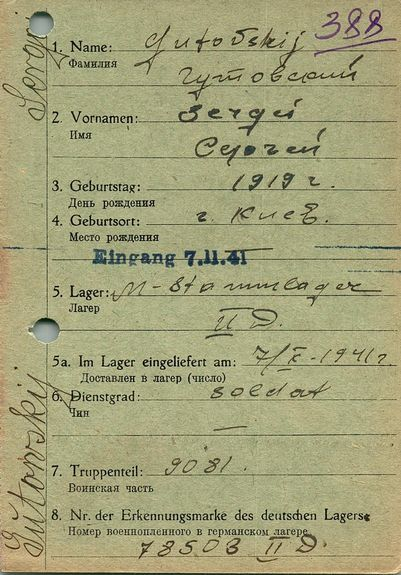 388
1. Name: Gutovskij
Фамилия
Гутовский
2. Vornamen: Sergei
Имя
Сергей
3. Geburtstag: 1919 г.
День рождения
4. Geburtsort: г. Киев.
Место рождения
Eingang 7.11.41
5. Lager: M-Stammlager
Лагер
II D.
5a. Im Lager eingeliefert am: 7/X-1941г.
Доставлен в лагер (число)
6. Dienstgrad: soldat
Чин
—
7. Truppenteil: 9081.
Воинская часть
8. Nr. der Erkennungsmarke des deutschen Lagers:
Номер военнопленного в германском лагере
78503 II D.
Gutovskij